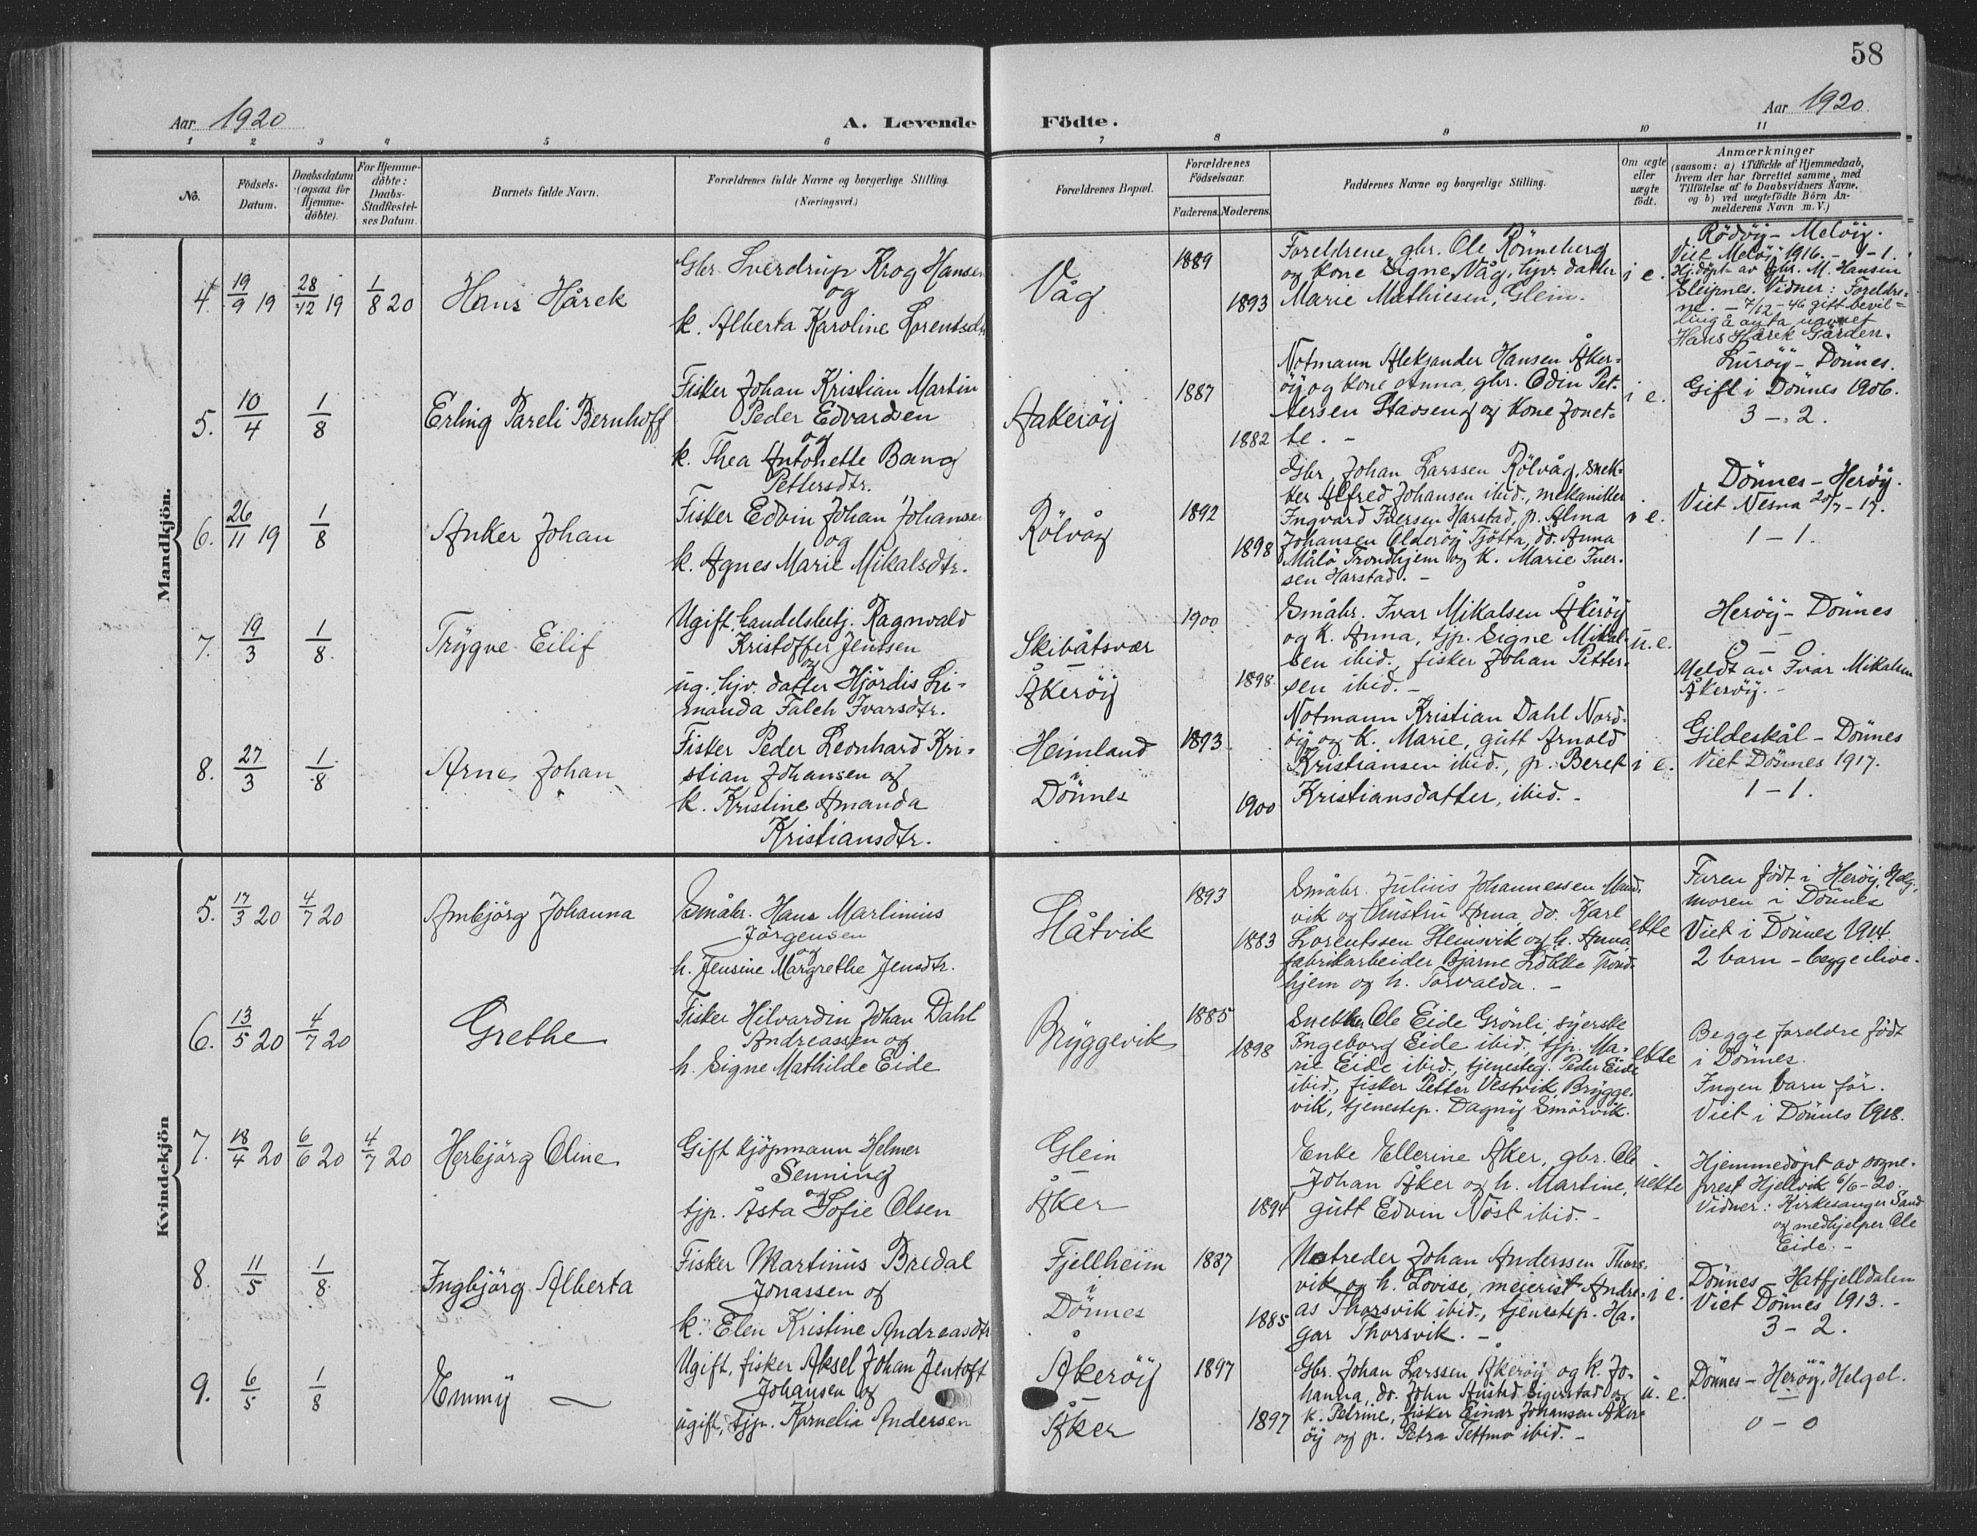 58
Aar 1920
A. Levende
Födte.
Aar 1920.
1 2 3 4 5 6 7 8 9 10 11
No.
Födsels-
Datum.
Daabsdatum
(ogsaa for
Hjemme-
döbte).
For Hjemme-
döbte:
Daabs-
Stadfæstel-
ses Datum.
Barnets fulde Navn.
Forældrenes fulde Navne og borgerlige Stilling.
(Næringsvei.)
Forældrenes Bopæl.
Forældrenes
Födselsaar.
Faderens. Moderens.
Faddernes Navne og borgerlige Stilling.
Om ægte
eller
uægte
födt.
Anmærkninger
(saasom: a) i Tilfælde af Hjemmedaab,
hvem der har forrettet samme, med
Tilföielse af to Daabsvidners Navne,
og b) ved uægtefödte Börn An-
melderens Navn m. V.)
Mandkjön.
4. 19/9 19 28/12 19 1/8 20
Hans Hårek
Gbr. Sverdrup Krog Hansen
og
k. Alberta Karoline Lorentsdtr
Våg
1889
1893
Foreldrene, gbr. Ole Rönneberg
og kone Signe, Våg, hjv. datter
Marie Mathiesen, Glein.
i e.
Rödöy - Melöy.
Viet Melöy 1916. - 1-1.
Hj.döpt av gbr. M. Hansen
Sleipnes. Vidner: Foreldre-
ne. - 7/12-46 gitt bevil-
ling å anta navnet
Hans Hårek Gården.
5. 10/4 1/8
Erling Pareli Bernhoff
Fisker Johan Kristian Martin
Peder Edvardsen
og
k. Thea Antonette Bang
Pettersdtr.
Aakeröy
1887
1882
Notmann Aleksander Hansen Åker-
öy og kone Anna, gbr. Odin Pet-
tersen Stavseng og kone Jonet-
te. -
i e.
Luröy - Dönnes.
Gift i Dönnes 1906.
3 - 2.
6. 26/11 19 1/8
Anker Johan
Fisker Edvin Johan Johansen
og
k. Agnes Marie Mikalsdtr.
Rölvåg
1892
1898
Gbr. Johan Larssen Rölvåg, snek-
ker Alfred Johansen ibid., mekaniker
Ingvard Iversen Harstad, p. Alma
Johansen Olderöy Tjötta, do. Anna
Målö Trondhjem og k. Marie Iver-
sen Harstad. -
i e.
Dönnes - Heröy.
Viet Nesna 20/7 - 17.
1 - 1.
7. 19/3 1/8
Trygve Eilif
Ugift, handelsbetj. Ragnvald
Kristoffer Jentsen
og
ug. hjv. datter Hjördis Li-
manda Falch Ivarsdtr.
Skibåtsvær
Åkeröy
1900
1898
Småbr. Ivar Mikalsen Åkeröy
og k. Anna, tjp. Signe Mikal-
sen ibid., fisker Johan Petter-
sen ibid. -
u. e.
Heröy - Dönnes
0 - 0
Meldt av Ivar Mikalsen
Åkeröy. -
8. 27/3 1/8
Arne Johan
Fisker Peder Leonhard Kri-
stian Johansen og
k. Kristine Amanda
Kristiansdtr.
Heimland
i
Dönnes
1893
1900
Notmann Kristian Dahl Nord-
öy og k. Marie, gutt Arnold
Kristiansen ibid., p. Beret
Kristiansdatter, ibid. -
i e.
Gildeskål - Dönnes
Viet Dönnes 1917.
1 - 1.
Kvindekjön
5. 17/3 20 4/7 20
Ambjörg Johanna
Småbr. Hans Martinius
Jörgensen
og
h. Jensine Margrethe Jensdtr.
Slåtvik
1893
1883
Småbr. Julius Johannessen Mand-
vik og hustru Anna, do. Karl
Lorentssen Steinsvik og h. Anna,
fabrikarbeider Bjarne Trond-
hjem og h. Torvalda. -
ekte
Faren födt i Heröy, Helg.
moren i Dönnes
Viet i Dönnes 1914.
2 barn - begge ilive.
6. 13/5 20 4/7 20
Grethe
Fisker Hilvardin Johan Dahl
Andreassen og
h. Signe Mathilde Eide
Bryggevik
1885
1898
Snekker Ole Eide Grönli, syerske
Ingeborg Eide ibid., tjp. Ma-
rie Eide ibid., tjenesteg. Peder Eide
ibid., fisker Petter Vestvik, Brygge-
vik, tjenestep. Dagny Smörvik.
ekte
Begge foreldre födt
i Dönnes.
Ingen barn för.
Viet i Dönnes 1918.
7. 18/4 20 6/6 20 4/7 20
Herbjörg Oline
Gift kjöpmann Helmer
Senning
og
tjp. Åsta Sofie Olsen
Glein
Åker
1894
Enke Ellerine Åker, gbr. Ole
Johan Åker og h. Martine,
gutt Edvin Nöst ibid. -
uekte
Hjemmedöpt av sogne-
prest Hjellvik 6/6 - 20.
Vidner: Kirkesanger Sand
og medhjelper Ole
Eide. -
8. 11/5 1/8
Ingbjörg Alberta
Fisker Martinus Bredal
Jonassen og
k. Elen Kristine Andreasdtr
Fjellheim
i
Dönnes
1887
1885
Notreder Johan Anderssen Thors-
vik og h. Lovise, meierist Andre-
as Thorsvik ibid., tjenestep. Ha-
gar Thorsvik. -
i e.
Dönnes - Hatfjelldalen
Viet Dönnes 1913. -
3 - 2.
9. 6/5 1/8
Emmy
Ugift, fisker Aksel Johan Jentoft
Johansen og
ugift, tjp. Kornelia Andersen
Åkeröy
Åker
1897
1897
Gbr. Johan Larssen Åkeröy og k. Jo-
hanna, do. John Sigerstad og
k. Petrine, fisker Einar Johansen Åker-
öy og p. Petra Tettmo ibid. -
u. e.
Dönnes - Heröy, Helgel.
0 - 0